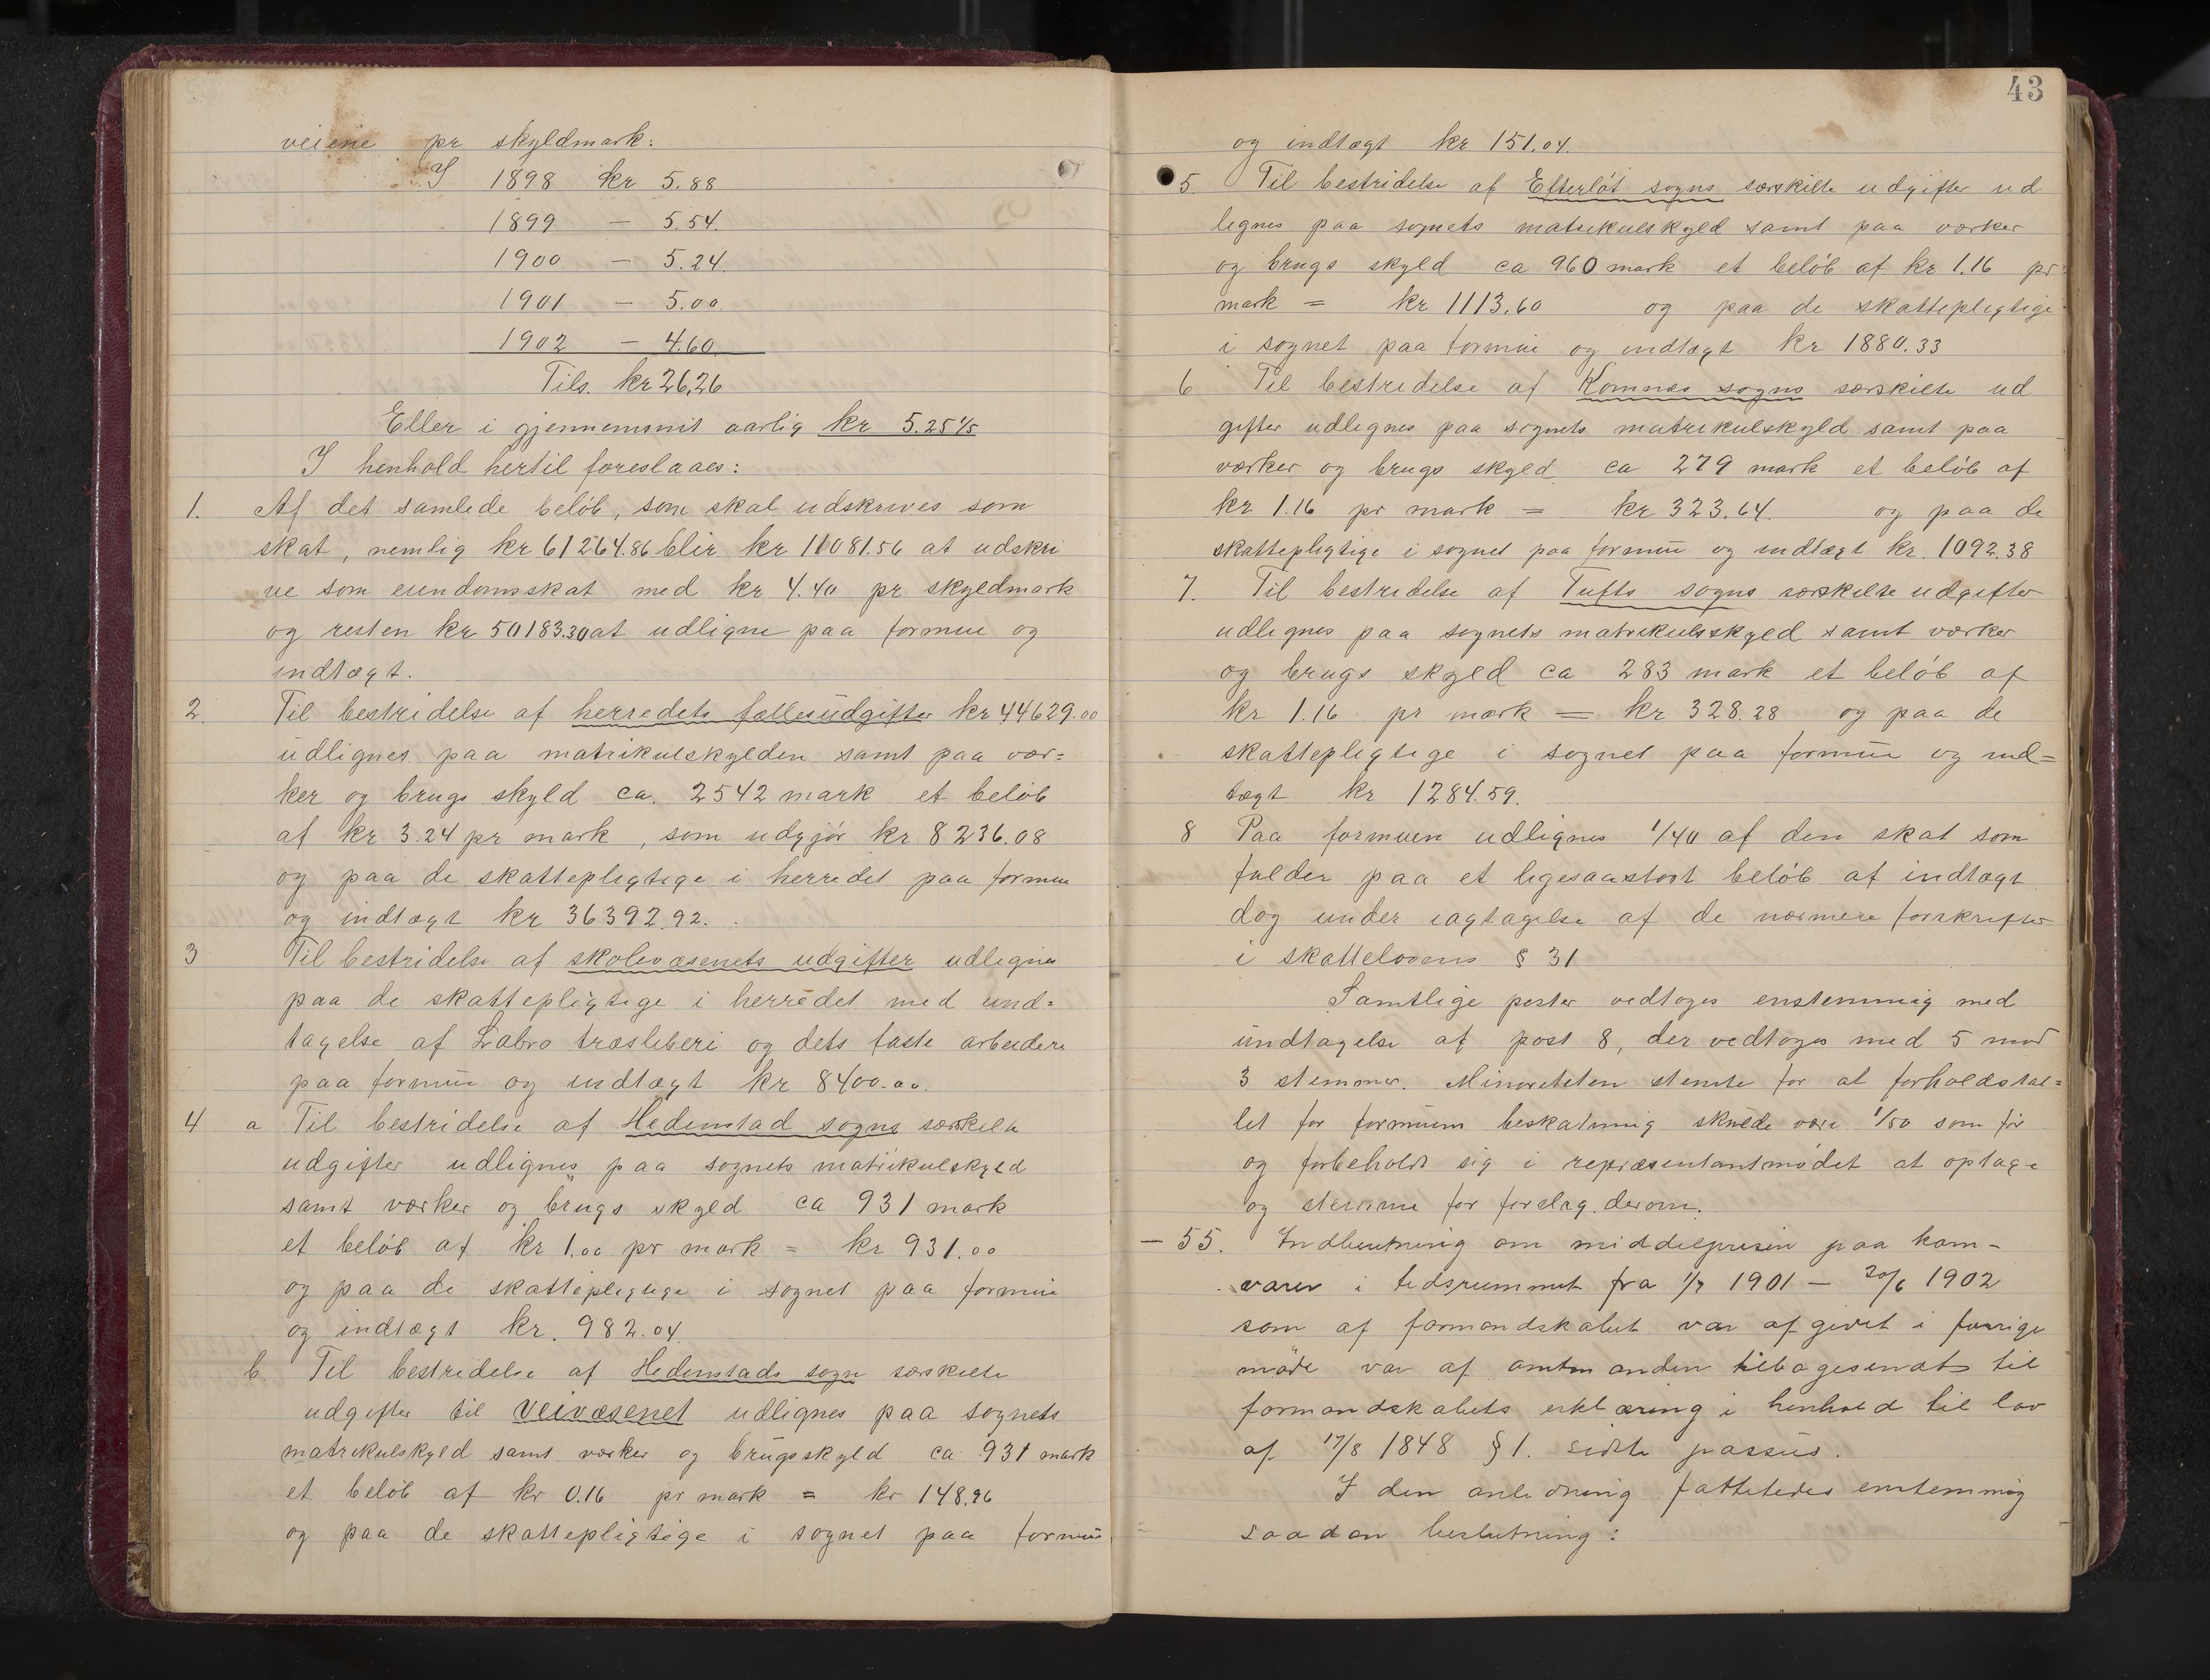 veiene pr skyldmark:
I 1898 kr 5.88
1899 — 5.54.
1900 — 5.24.
1901 — 5.00
1902 — 4.60
Tils. kr 26,26
Eller i gjennemsnit aarlig kr 5.25 1/5
I henhold hertil foreslaaes:
1. Af det samlede beløb, som skal udskrives som
skat, nemlig kr 61264.86 blir kr 11081.56 at udskri
ve som eiendomsskat med kr 4.40 pr skyldmark
og resten kr 50183.30 at udligne paa formue og
indtægt.
2. Til bestridelse af herredets fællesudgifter kr 44629.00
udlignes paa matrikulskylden samt paa vær=
ker og brugs skyld ca. 2542 mark et beløb
af kr 3.24 pr mark, som udgjør kr 8236.08
og paa de skattepligtige i herredet paa formue
og indtægt kr 36392.92.
3 Til bestridelse af skolevæsenets udgifter udlignes
paa de skattepligtige i herredet med und=
tagelse af Labro træsliberi og dets faste arbeidere
paa formue og indtægt kr 8400.00.
4 a Til bestridelse af Hedenstad sogns særskilte
udgifter udlignes paa sognets matrikulskyld
samt værker og brugs skyld ca 931 mark
et beløb af kr 1.00 pr mark = kr 931.00
og paa de skattepligtige i sognet paa formue
og indtægt kr. 982.04.
b. Til bestridelse af Hedenstads sogn særskilte
udgifter til veivæsenet udlignes paa sognets
matrikulskyld samt værker og brugsskyld ca 931 mark
et beløb af kr 0.16 pr mark = kr 148.96
og paa de skattepligtige i sognet paa formue
43
og indtægt kr 151.04.
5. Til bestridelse af Efterløt sogns særskilte udgifter ud
lignes paa sognets matrikulskyld samt paa værker
og brugs skyld ca 960 mark et beløb af kr 1.16 pr
mark = kr 1113.60 og paa de skattepligtige
i sognet paa formue og indtægt kr 1880.33
6 Til bestridelse af Komnæs sogns særskilte ud
gifter udlignes paa sognets matrikulskyld samt paa
værker og brugs skyld ca 279 mark et beløb af
kr 1.16 pr mark = kr 323.64. og paa de
skattepligtige i sognet paa formue og indtægt kr. 1092.38
7. Til bestridelse af Tufts sogns særskilte udgifter
udlignes paa sognets matrikulsskyld samt værker
og brugs skyld ca 283 mark et beløb af
kr 1.16 pr mark = kr 328.28 og paa de
skattepligtige i sognet paa formue og ind=
tægt kr 1284.59.
8 Paa formuen udlignes 1/40 af den skat som
falder paa et ligesaastort beløb af indtægt
dog under iagtagelse af de nærmere forskrifter
i skattelovens § 31
Samtlige poster vedtoges enstemmig med
undtagelse af post 8, der vedtoges med 5 mod
3 stemmer. Minoriteten stemte for at forholdstal=
let for formuens beskatning skulde være 1/50 som før
og forbeholdt sig i repræsentantmødet at optage
og stemme for forslag derom.
— 55. Indberetning om middelprisen paa korn-
varer i tidsrummet fra 1/7 1901 — 30/6 1902
som af formandskabet var afgivet i forrige
møde var af amtmanden tilbagesendt til
formandskabets erklæring i henhold til lov
af 17/8 1848 § 1. sidste passus.
I den anledning fattetedes enstemmig
saadan beslutning: